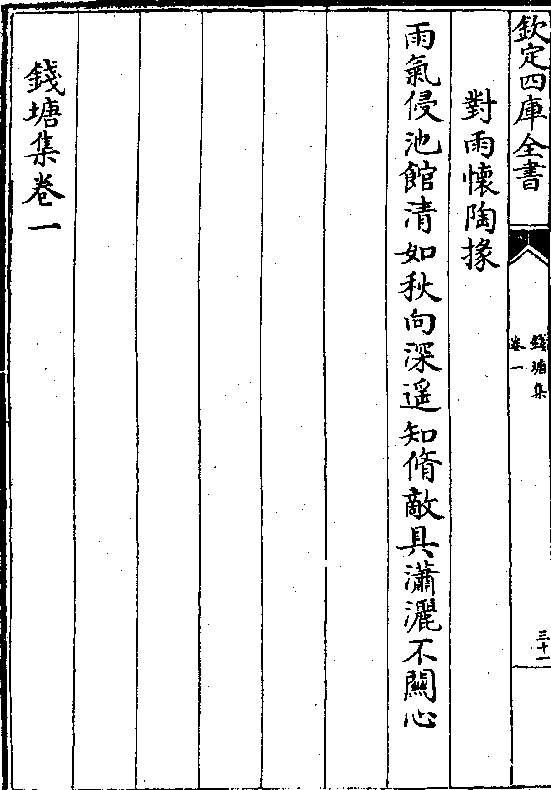 欽定四庫全書
錢塘集
卷一
三十一
對雨懷陶掾
雨氣侵池館清如秋向深遥知脩敵具瀟灑不關心
錢塘集卷一